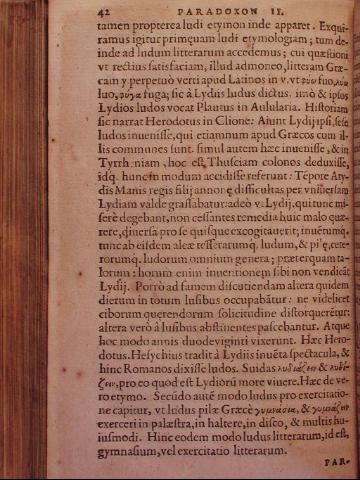 42 PARADOXON II.
tamen propterea ludi etymon inde apparet. Exqui-
ramus igitur primęuam ludi etymologiam; tum de-
inde ad ludum litterarum accedemus; cui quæstioni
vt rectius satisfaciam, illud admoneo, litteram Græ-
cam y perpetuò verti apud Latinos in v. vt φύω fuo, λύω
luo, φύγα fuga; sic à Lydiis ludus dictus. imò & ipsos
Lydios ludos vocat Plautus in Aulularia. Historiam
sic narrat Herodotus in Clione: Aiunt Lydij ipsi, sese
ludos inuenisse, qui etiamnum apud Græcos cum il-
lis communes sunt. simul autem hæc inuenisse, & in
Tyrrheniam, hoc est, Thusciam colonos deduxisse,
idq. hunc in modum accidisse referunt: Tēpore Aty-
dis Manis regis filij annonę difficultas per vniuersam
Lydiam valde grassabatur: adeò vt Lydij, qui tunc mi-
serè degebant, non cessantes remedia huic malo quæ-
rere, diuersa pro se quisque excogitauerit; inuētumq.
tunc ab eisdem aleæ tesserarumq. ludum, & pilę, cete-
rorumq. ludorum omnium genera; præterquam ta-
lorum: horum enim inuentionem sibi non vendicāt
Lydij. Porrò ad famem discutiendam altera quidem
dierum in totum lusibus occupabātur: ne videlicet
ciborum querendorum solicitudine distorquerētur:
altera verò à lusibus abstinentes pascebantur. Atque
hoc modo annis duodeviginti vixerunt. Hæc Hero-
dotus. Hesychius tradit à Lydiis inuēta spectacula, &
hinc Romanos dixisse ludos. Suidas λυδιάζειν & λυδί-
ζειν, pro eo quod est Lydiorū more viuere. Hæc de ve-
ro etymo. Secūdo autē modo ludus pro exercitatio-
ne capitur, vt ludus pilæ Græcè γυμνάσια, & γυμνάζειν
exerceri in palæstra, in haltere, in disco, & multis hu-
iusmodi. Hinc eodem modo ludus litterarum, id est,
gymnasium, vel exercitatio litterarum.
PAR-